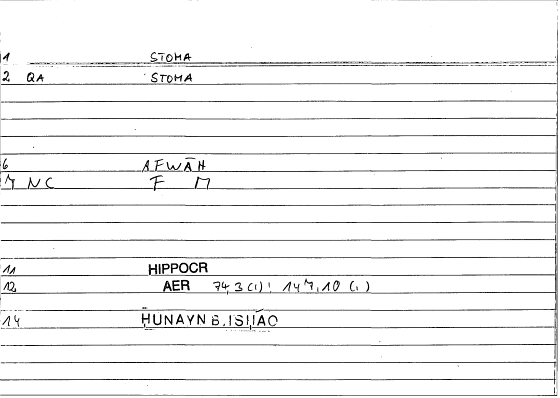 1 STOMA
2 QA STOMA
6 AFWĀH
7 NC F M
11 HIPPOCR
12 AER 74,3 (1) ! 147,10 (1)
14 ḤUNAYN B. ISḤĀQ